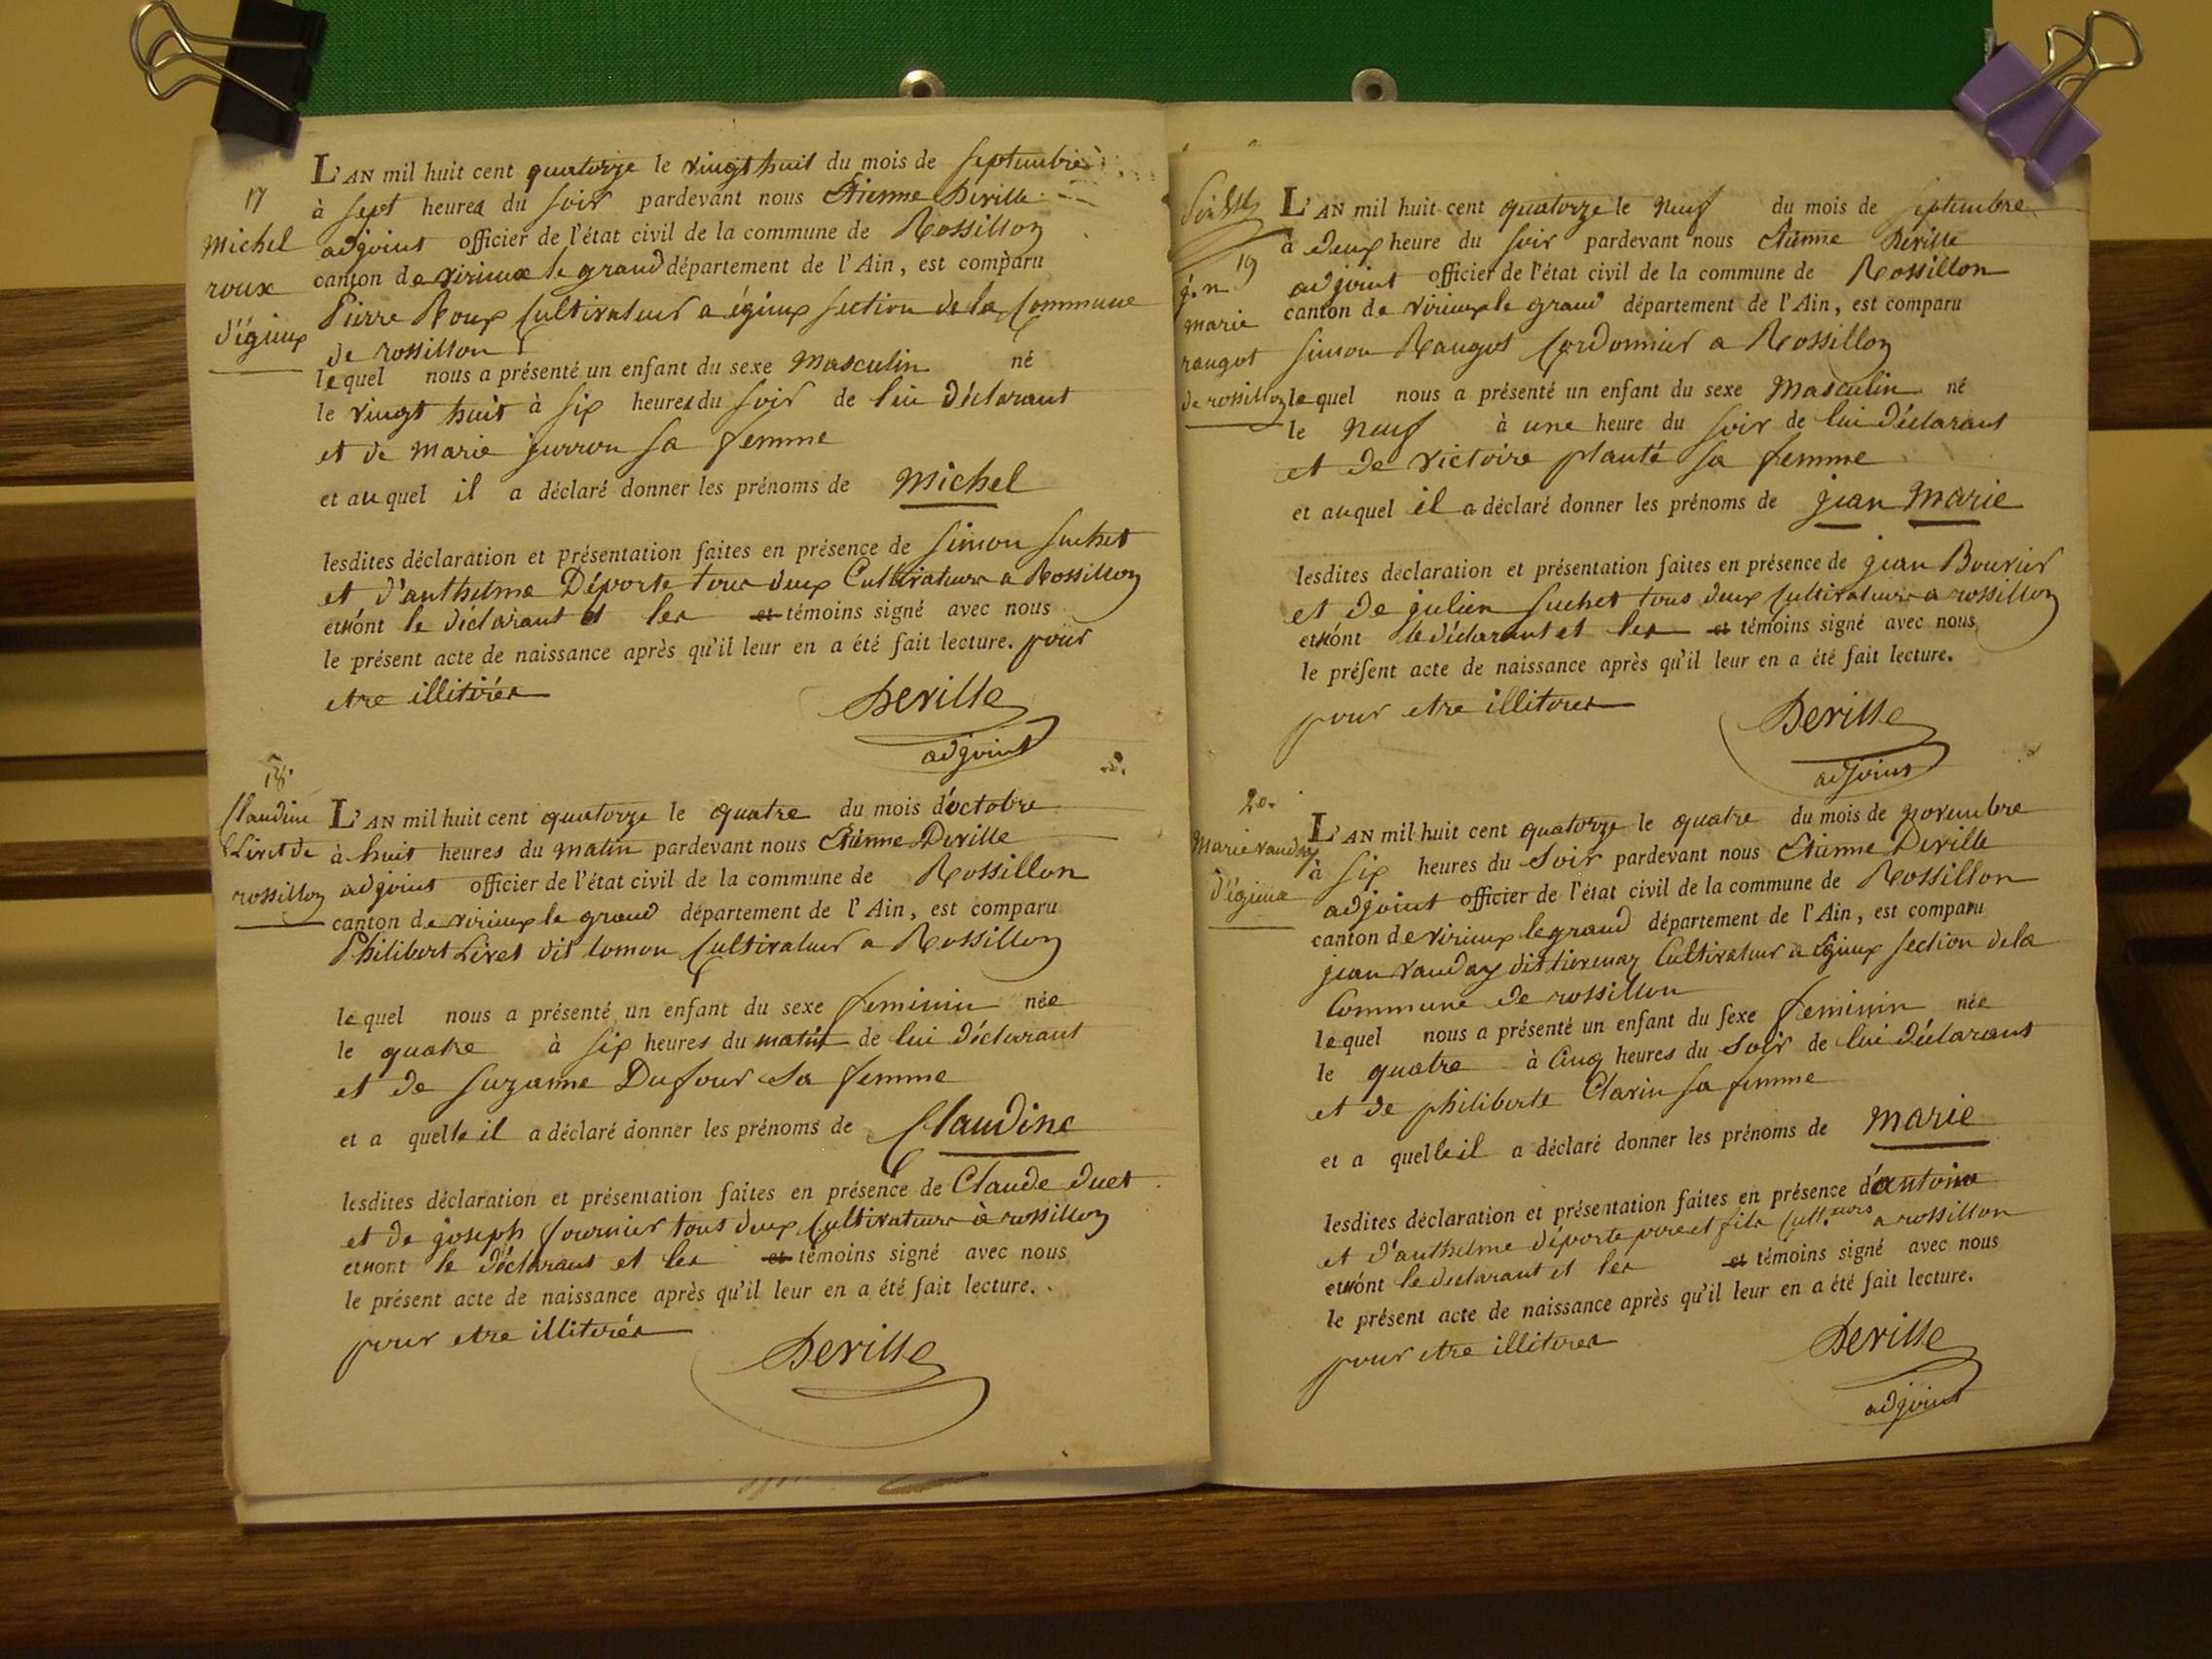 17
Michel
roux
d'égieux
L'AN mil huit cent quatorze le vingt huit du mois de septembre
à sept heures du soir pardevant nous Etienne Deville
adjoint officier de l'état civil de la commune de Rossillon
canton de virieux le grand département de l'Ain, est comparu
Pierre Roux Cultivateur a égieux section de la Commune
de rossillon
lequel nous a présenté un enfant du sexe Masculin né
le vingt huit à six heures du soir de lui déclarant
et de marie jurron sa femme
et auquel il a déclaré donner les prénoms de Michel
lesdites déclaration et présentation faites en présence de Simon Suchet
et d'anthelme Déporte tous deux Cultivateurs a Rossillon
et n'ont le déclarant et les et témoins signé avec nous
le présent acte de naissance après qu'il leur en a été fait lecture. pour
etre illitérés
Deville
adjoint
18.
Claudine
Livet de
rossillon
L'AN mil huit cent quatorze le quatre du mois d'octobre
à huit heures du matin pardevant nous Etienne Deville
adjoint officier de l'état civil de la commune de Rossillon
canton de virieux le grand département de l'Ain, est comparu
Philibert Livet dit tomon Cultivateur a Rossillon
lequel nous a présenté un enfant du sexe feminin née
le quatre à six heures du matin de lui déclarant
et de suzanne Dufour sa femme
et a quelle il a déclaré donner les prénoms de Claudine
lesdites déclaration et présentation faites en présence de Claude duet
et de joseph fournier tous deux Cultivateurs à rossillon
et n'ont le déclarant et les et témoins signé avec nous
le présent acte de naissance après qu'il leur en a été fait lecture.
pour etre illitérés
Deville
19
j.n
marie
raugot
de rossillon
L'AN mil huit cent quatorze le neuf du mois de septembre
à deux heure du soir pardevant nous Etienne Deville
adjoint officier de l'état civil de la commune de Rossillon
canton de virieux le grand département de l'Ain, est comparu
simon Raugot Cordonnier a Rossillon
lequel nous a présenté un enfant du sexe Masculin né
le neuf à une heure du soir de lui déclarant
et de victoire planté sa femme
et auquel il a déclaré donner les prénoms de jean Marie
lesdites déclaration et présentation faites en présence de jean Bouvier
et de julien suchet tous deux Cultivateurs a rossillon
et n'ont le déclarant et les et témoins signé avec nous
le présent acte de naissance après qu'il leur en a été fait lecture.
pour etre illitérés
Deville
adjoint
20.
Marie vauday
d'égieux
L'AN mil huit cent quatorze le quatre du mois de novembre
à six heures du soir pardevant nous Etienne Deville
adjoint officier de l'état civil de la commune de Rossillon
canton de virieux le grand département de l'Ain, est comparu
jean vauday dit Cultivateur a égieux section de la
Commune de rossillon
lequel nous a présenté un enfant du sexe feminin née
le quatre à Cinq heures du soir de lui déclarant
et de philiberte Clavin sa femme
et a quelle il a déclaré donner les prénoms de marie
lesdites déclaration et présentation faites en présence d'antoine
et d'anthelme déporte pere et fils Cult.eurs a rossillon
et n'ont le déclarant et les et témoins signé avec nous
le présent acte de naissance après qu'il leur en a été fait lecture.
pour etre illitérés
Deville
adjoint